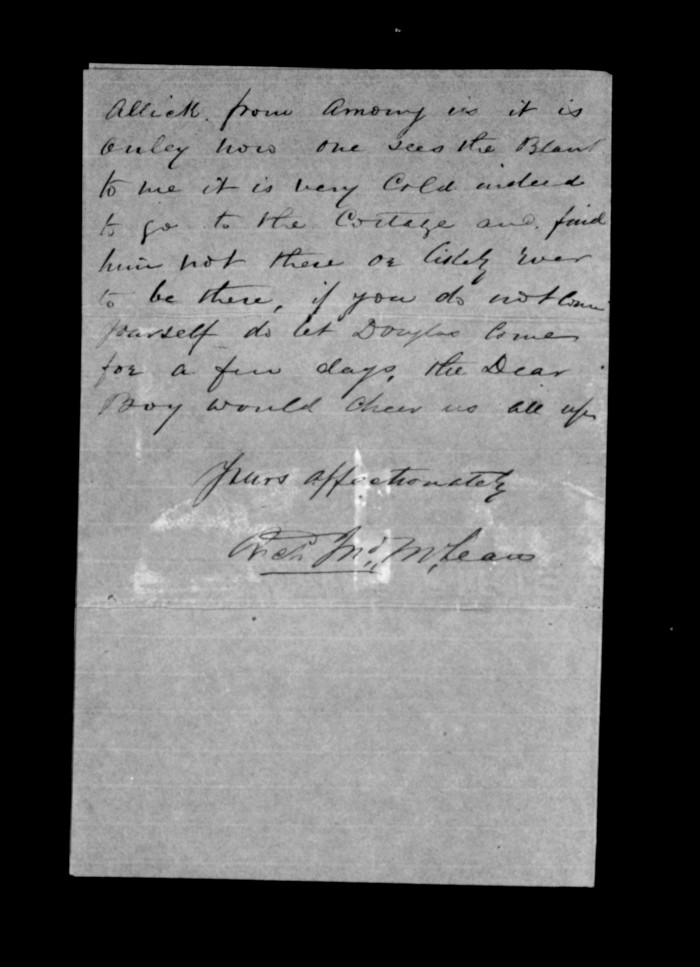 Allick. from Among us it is
Onley now one sees the Blank
to me it is very Cold indeed
to go to the Cottage and find
him not there or likely ever
to be there, if you do not Come
yourself do let Douglas Come
for a few days, the Dear
Boy would cheer us all up
Yours affectionately
Archd McLean